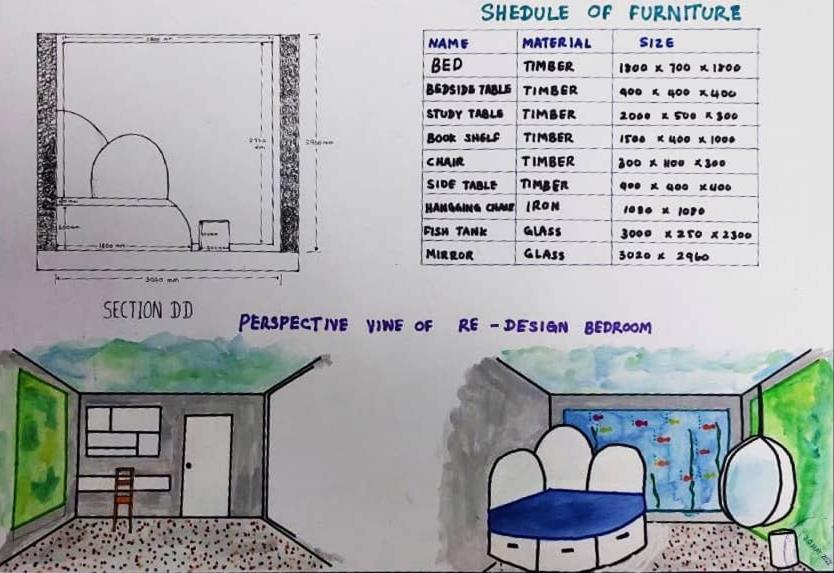 SHEDULE OF FURNITURE
NAME MATERIAL SIZE
BED TIMBER 1800 x 700 x 1800
BEDSIDE TABLE TIMBER 400 x 400 x 400
STUDY TABLE TIMBER 2000 x 500 x 800
BOOK SHELF TIMBER 1500 x 400 x 1000
CHAIR TIMBER 300 x 1100 x 300
SIDE TABLE TIMBER 400 x 400 x 400
HANGGING CHAIR IRON 1080 x 1080
FISH TANK GLASS 3000 x 250 x 2300
MIRROR GLASS 3020 x 2960
2960 mm
1800 mm
SECTION DD
PERSPECTIVE VIWE OF RE - DESIGN BEDROOM